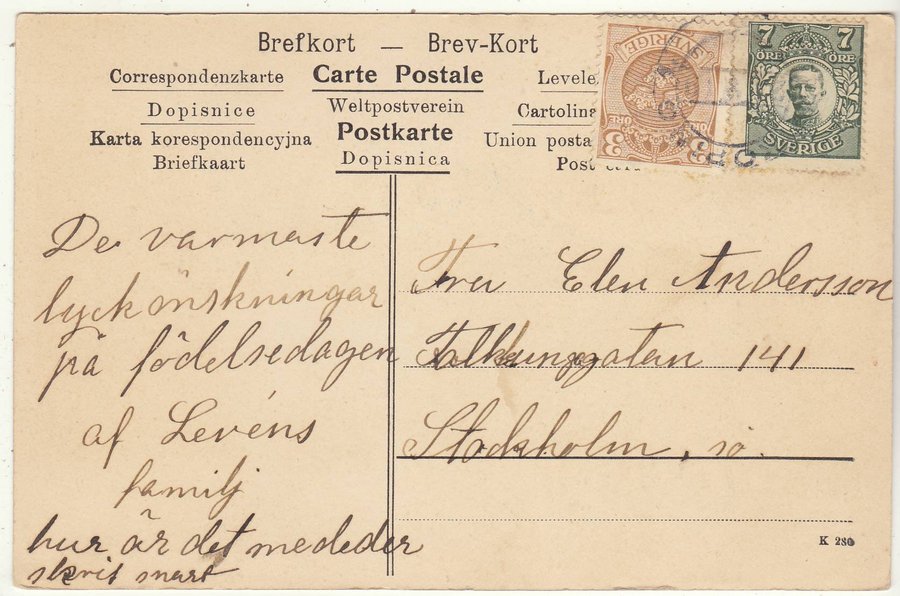 Brefkort — Brev-Kort
Correspondenzkarte Carte Postale Levele
Dopisnice Weltpostverein Cartolina
Karta korespondencyjna Postkarte Union posta
Briefkaart Dopisnica Post
7 7
ÖRE ÖRE
SVERIGE
SVERIGE
ÖRE
3 3
De varmaste
lyckönskningar
på födelsedagen
af Levéns
familj
hur är det mededer
skrif snart
Fru Elen Andersson
141
Stockholm. sö.
K 280